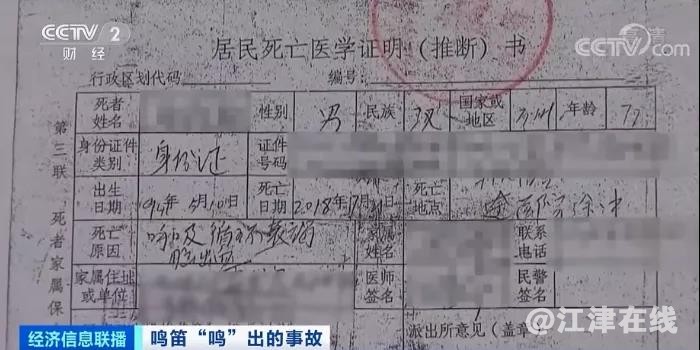 CCTV 2
财经
CCTV.com
居民死亡医学证明（推断）书
行政区划代码 编号：
第三联、死者家属保
死者姓名 性别 男 民族 汉 国家或地区 年龄
身份证件类别 身份证 证件号码
出生日期 5月10日 死亡日期 2018年 死亡地点 途中
死亡原因 呼吸循环衰竭 家属姓名 联系电话
脑出血
家属住址或单位 医师签名 民警签名
派出所意见（盖章
经济信息联播 鸣笛“鸣”出的事故
@江津在线